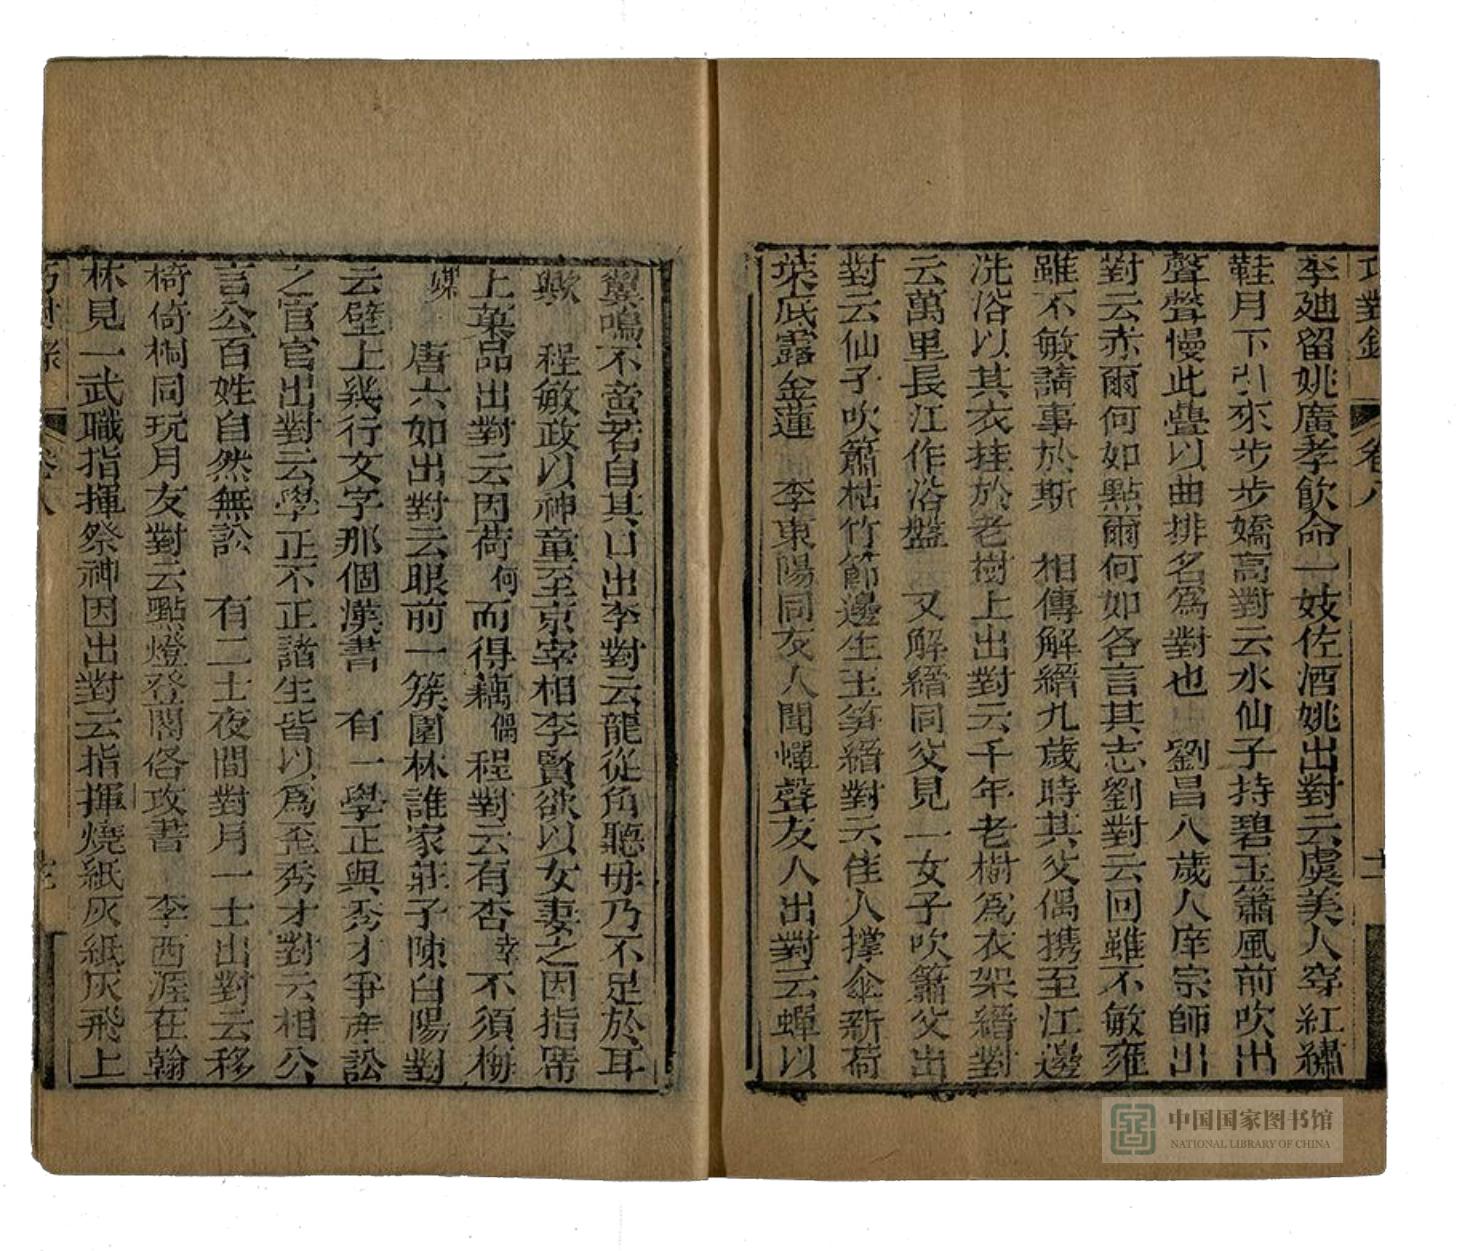 巧對錄
卷八
十二
李廸留姚廣孝飲命一妓佐酒姚出對云虞美人穿紅繡
鞋月下引來步步嬌高對云水仙子持碧玉簫風前吹出
聲聲慢此疊以曲排名為對也　劉昌八歲人庠宗師出
對云赤爾何如點爾何如各言其志劉對云回雖不敏雍
雖不敏請事於斯　相傳解縉九歲時其父偶携至江邊
洗浴以其衣挂於老樹上出對云千年老樹為衣架縉對
云萬里長江作浴盤　又解縉同父見一女子吹簫父出
對云仙子吹簫枯竹節邊生玉筍縉對云佳人撐傘新荷
葉底露金蓮　李東陽同友人聞蟬聲友人出對云蟬以
翼鳴不啻若自其口出李對云龍從角聽毋乃不足於耳
歟　程敏政以神童至京宰相李賢欲以女妻之因指席
上菓品出對云因荷何而得藕偶程對云有杏幸不須梅
媒　唐六如出對云眼前一簇園林誰家莊子陳白陽對
云壁上幾行文字那個漢書　有一學正與秀才爭產訟
之官官出對云學正不正諸生皆以為歪秀才對云相公
言公百姓自然無訟　有二士夜間對月一士出對云移
椅倚桐同玩月友對云點燈登閣各攻書　李西涯在翰
林見一武職指揮祭神因出對云指揮燒紙灰紙灰飛上
巧對錄
卷八
中国国家图书馆
NATIONAL LIBRARY OF CHINA